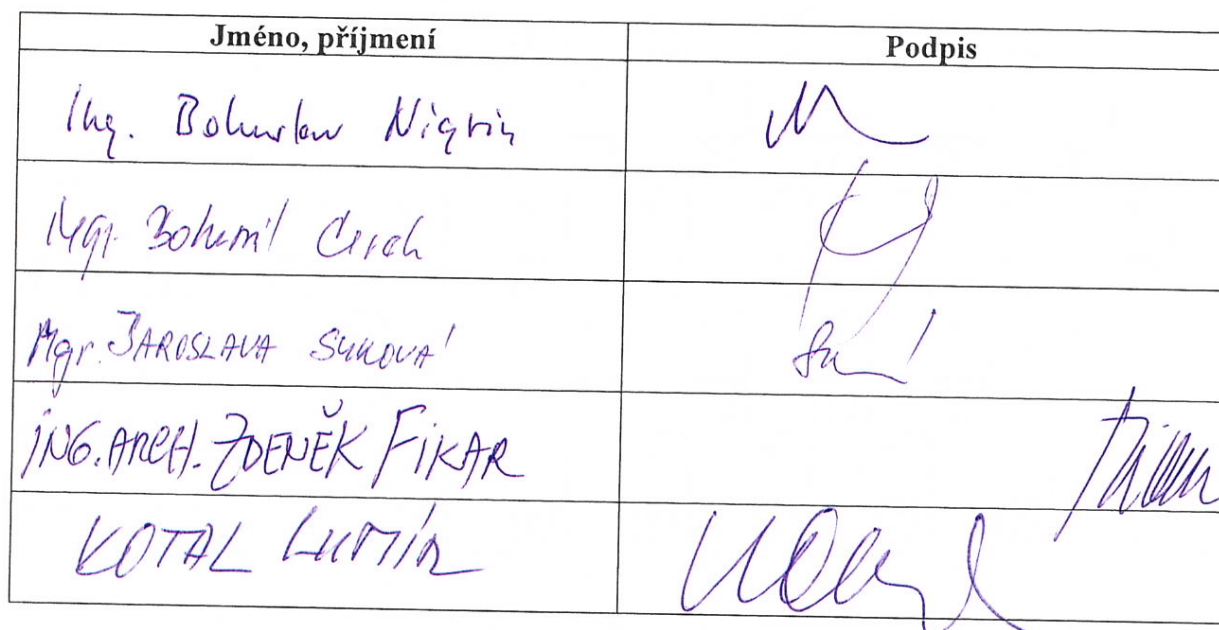 Jméno, příjmení Podpis
Ing. Bohuslav Nigrin
Mgr. Bohumil
Mgr. JAROSLAVA SUKOVÁ
ING. ARCH. ZDENĚK FIKAR
KOTAL LUMÍR